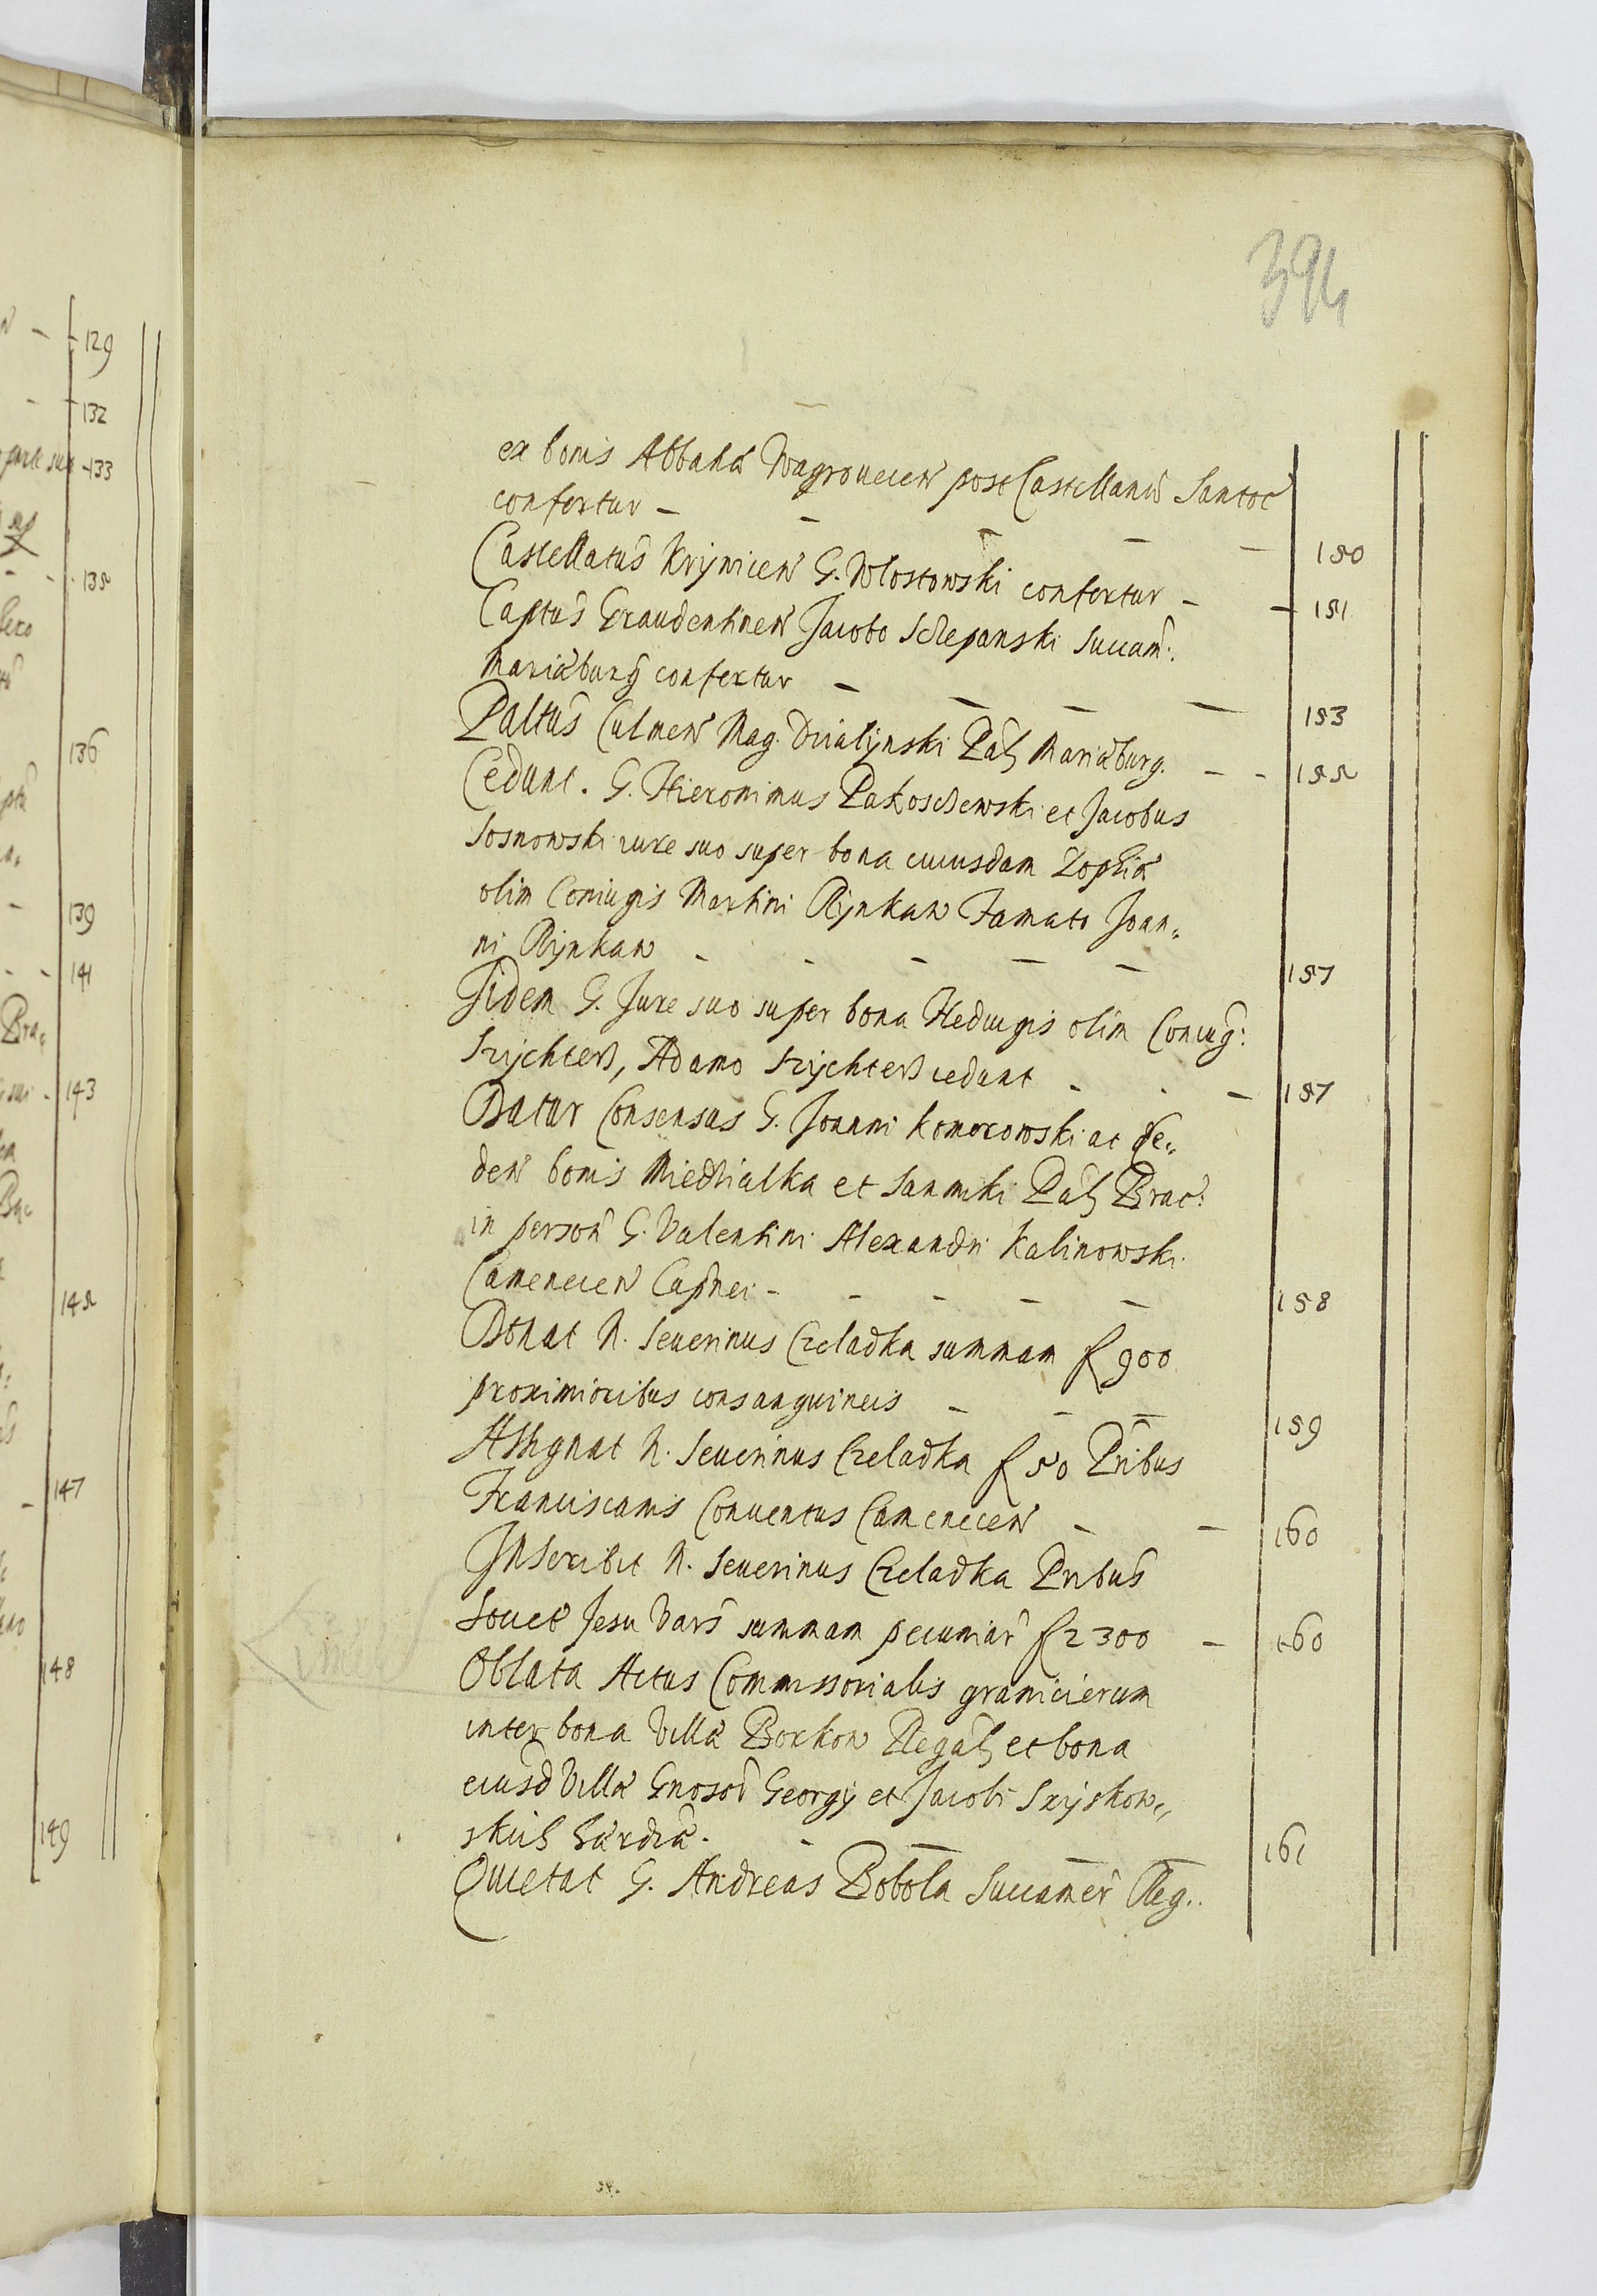 394
ex bonis Abbatiæ Wagrouecen post Castellanū Santoc
confertur - - - - - 150
Castellatus Krÿwicen G. Wlostowski confertur - - 151
Captus Graudentinen Jacobo Sczepanski Succam:
Mariæburg confertur - - - - 153
Paltus Culmen Mag. Dzialÿnski Pal Mariæburg. - - 155
Cedunt. G. Hieronimus Pakosczewski et Jacobus
Sosnowski iure suo super bona cuiusdam Zophiæ
olim Coniugis Martini Rÿnkaw Famato Joan„
ni Rÿnkaw - - - - - 157
Jidem G. Jure suo super bona Heduigis olim Coniug:
Szÿchters, Adamo Szÿchters cedunt - - - 157
Datur Consensus G. Joanni Komorowski ac
den bonis Miedzialka et Sanniki Pal Brac:
in person G. Valentini Alexandri Kalinowski
Camenecen Capnei - - - - - 158
Donat N. Seuerinus Czeladka summam f 900
proximioribus consanguineis - - - 159
Assignat N. Seuerinus Czeladka f 50 Pribus
Franciscanis Conuentus Camenecen - - 160
Inscribit N. Seuerinus Czeladka Pribus
Societ Jesu Vars summam pecuniar f 2300 - 160
Oblata Actus Commissorialis granicierum
inter bona Villæ Borkow Regal et bona
eiusd Villæ Gnosor Georgÿ et Jacobi
hærdiæ. - - - - 161
Quietat G. Andreas Bobola Succamer Reg..
129
132
133
135
136
139
141
143
145
147
148
149